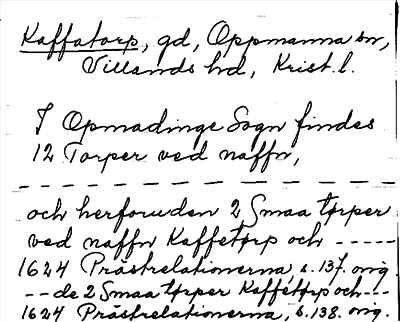 Kaffatorp, gd, Oppmanna sn,
Villands hd, Krist. l.
I Opmadinge Sogn findes
12 Torper ved naffn,
och herforuden 2 Smaa tørper
ved naffn Kaffetørp och -----
1624 Prästrelationerna, s. 137. orig.
--de 2 Smaa tørper Kaffetørp och---
1624 Prästrelationerna, s. 138. orig.